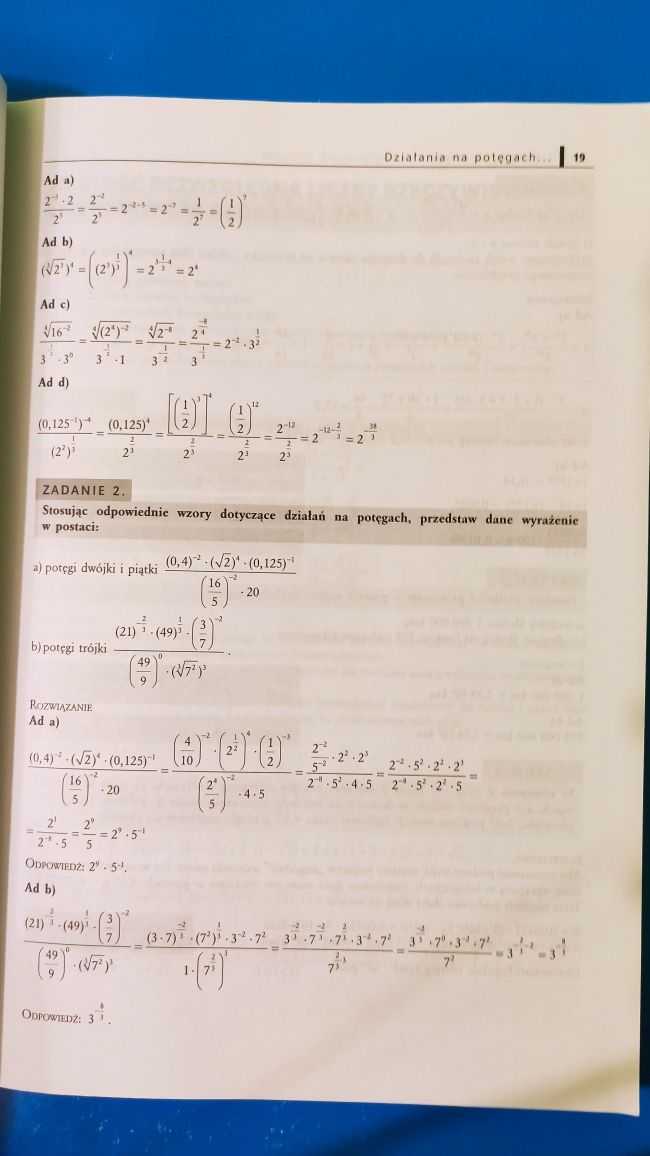 Działania na potęgach... 19
Ad a)
\frac{2^{-3} \cdot 2}{2^5} = \frac{2^{-2}}{2^5} = 2^{-2-5} = 2^{-7} = \frac{1}{2^7} = \left(\frac{1}{2}\right)^7
Ad b)
(\sqrt[3]{2^3})^4 = \left((2^3)^{\frac{1}{3}}\right)^4 = 2^{3 \cdot \frac{1}{3} \cdot 4} = 2^4
Ad c)
\frac{\sqrt[4]{16^{-2}}}{3^{-\frac{1}{2}} \cdot 3^0} = \frac{\sqrt[4]{(2^4)^{-2}}}{3^{-\frac{1}{2}} \cdot 1} = \frac{\sqrt[4]{2^{-8}}}{3^{-\frac{1}{2}}} = \frac{2^{\frac{-8}{4}}}{3^{-\frac{1}{2}}} = 2^{-2} \cdot 3^{\frac{1}{2}}
Ad d)
\frac{(0,125^{-1})^{-4}}{(2^2)^{\frac{1}{3}}} = \frac{(0,125)^4}{2^{\frac{2}{3}}} = \frac{\left[\left(\frac{1}{2}\right)^3\right]^4}{2^{\frac{2}{3}}} = \frac{\left(\frac{1}{2}\right)^{12}}{2^{\frac{2}{3}}} = \frac{2^{-12}}{2^{\frac{2}{3}}} = 2^{-12-\frac{2}{3}} = 2^{-\frac{38}{3}}
ZADANIE 2.
Stosując odpowiednie wzory dotyczące działań na potęgach, przedstaw dane wyrażenie
w postaci:
a) potęgi dwójki i piątki \frac{(0,4)^{-2} \cdot (\sqrt{2})^4 \cdot (0,125)^{-1}}{\left(\frac{16}{5}\right)^{-2} \cdot 20}
b) potęgi trójki \frac{(21)^{-\frac{2}{3}} \cdot (49)^{\frac{1}{3}} \cdot \left(\frac{3}{7}\right)^{-2}}{\left(\frac{49}{9}\right)^0 \cdot (\sqrt[3]{7^2})^3}.
ROZWIĄZANIE
Ad a)
\frac{(0,4)^{-2} \cdot (\sqrt{2})^4 \cdot (0,125)^{-1}}{\left(\frac{16}{5}\right)^{-2} \cdot 20} = \frac{\left(\frac{4}{10}\right)^{-2} \cdot \left(2^{\frac{1}{2}}\right)^4 \cdot \left(\frac{1}{2}\right)^{-3}}{\left(\frac{2^4}{5}\right)^{-2} \cdot 4 \cdot 5} = \frac{\frac{2^{-2}}{5^{-2}} \cdot 2^2 \cdot 2^3}{2^{-8} \cdot 5^2 \cdot 4 \cdot 5} = \frac{2^{-2} \cdot 5^2 \cdot 2^2 \cdot 2^3}{2^{-8} \cdot 5^2 \cdot 2^2 \cdot 5} =
= \frac{2^1}{2^{-8} \cdot 5} = \frac{2^9}{5} = 2^9 \cdot 5^{-1}
ODPOWIEDŹ: 2^9 \cdot 5^{-1}.
Ad b)
\frac{(21)^{-\frac{2}{3}} \cdot (49)^{\frac{1}{3}} \cdot \left(\frac{3}{7}\right)^{-2}}{\left(\frac{49}{9}\right)^0 \cdot (\sqrt[3]{7^2})^3} = \frac{(3 \cdot 7)^{\frac{-2}{3}} \cdot (7^2)^{\frac{1}{3}} \cdot 3^{-2} \cdot 7^2}{1 \cdot \left(7^{\frac{2}{3}}\right)^3} = \frac{3^{\frac{-2}{3}} \cdot 7^{\frac{-2}{3}} \cdot 7^{\frac{2}{3}} \cdot 3^{-2} \cdot 7^2}{7^{\frac{2}{3} \cdot 3}} = \frac{3^{\frac{-2}{3}} \cdot 7^0 \cdot 3^{-2} \cdot 7^2}{7^2} = 3^{-\frac{2}{3}-2} = 3^{-\frac{8}{3}}
ODPOWIEDŹ: 3^{-\frac{8}{3}}.